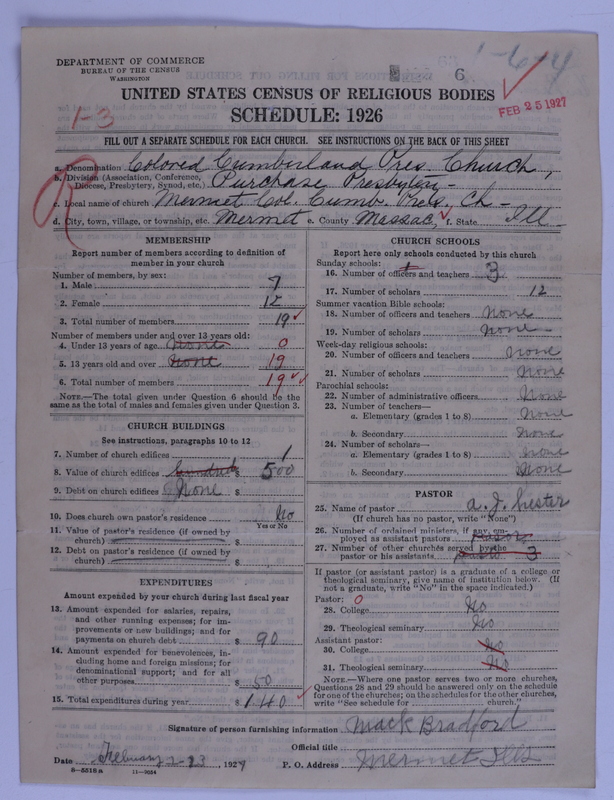 DEPARTMENT OF COMMERCE
BUREAU OF THE CENSUS
WASHINGTON
6
UNITED STATES CENSUS OF RELIGIOUS BODIES
SCHEDULE: 1926
FEB 25 1927
1-3
FILL OUT A SEPARATE SCHEDULE FOR EACH CHURCH. SEE INSTRUCTIONS ON THE BACK OF THIS SHEET
a. Denomination Colored Cumberland Pres. Church,
b. Division (Association, Conference, Diocese, Presbytery, Synod, etc.) Purchase Presbytery
c. Local name of church Mermet Col. Cumb. Pres. Ch
d. City, town, village, or township, etc. Mermet e. County Massac, f. State Ill
MEMBERSHIP
Report number of members according to definition of member in your church
Number of members, by sex:
1. Male 7
2. Female 12
3. Total number of members 19
Number of members under and over 13 years old:
4. Under 13 years of age None 0
5. 13 years old and over None 19
6. Total number of members 19
NOTE.—The total given under Question 6 should be the same as the total of males and females given under Question 3.
CHURCH BUILDINGS
See instructions, paragraphs 10 to 12
7. Number of church edifices 1
8. Value of church edifices hundred $ 500
9. Debt on church edifices None $
10. Does church own pastor's residence No
Yes or No
11. Value of pastor's residence (if owned by church) $
12. Debt on pastor's residence (if owned by church) $
EXPENDITURES
Amount expended by your church during last fiscal year
13. Amount expended for salaries, repairs, and other running expenses; for improvements or new buildings; and for payments on church debt $ 90
14. Amount expended for benevolences, including home and foreign missions; for denominational support; and for all other purposes $ 50
15. Total expenditures during year $ 140
CHURCH SCHOOLS
Report here only schools conducted by this church
Sunday schools:
16. Number of officers and teachers 3
17. Number of scholars 12
Summer vacation Bible schools:
18. Number of officers and teachers None
19. Number of scholars None
Week-day religious schools:
20. Number of officers and teachers None
21. Number of scholars None
Parochial schools:
22. Number of administrative officers None
23. Number of teachers—
a. Elementary (grades 1 to 8) None
b. Secondary None
24. Number of scholars—
a. Elementary (grades 1 to 8) None
b. Secondary None
PASTOR
25. Name of pastor A. J. Lester
(If church has no pastor, write "None")
26. Number of ordained ministers, if any, employed as assistant pastors
27. Number of other churches served by the pastor or his assistants 3
If pastor (or assistant pastor) is a graduate of a college or theological seminary, give name of institution below. (If not a graduate, write "No" in the space indicated.)
Pastor: 0
28. College No
29. Theological seminary No
Assistant pastor:
30. College No
31. Theological seminary No
NOTE.—Where one pastor serves two or more churches, Questions 28 and 29 should be answered only on the schedule for one of the churches; on the schedules for the other churches, write "See schedule for church."
Signature of person furnishing information Mack Bradford
Official title
Date February 23, 1927 P. O. Address Mermet Ills
8-5518 a 11-9054